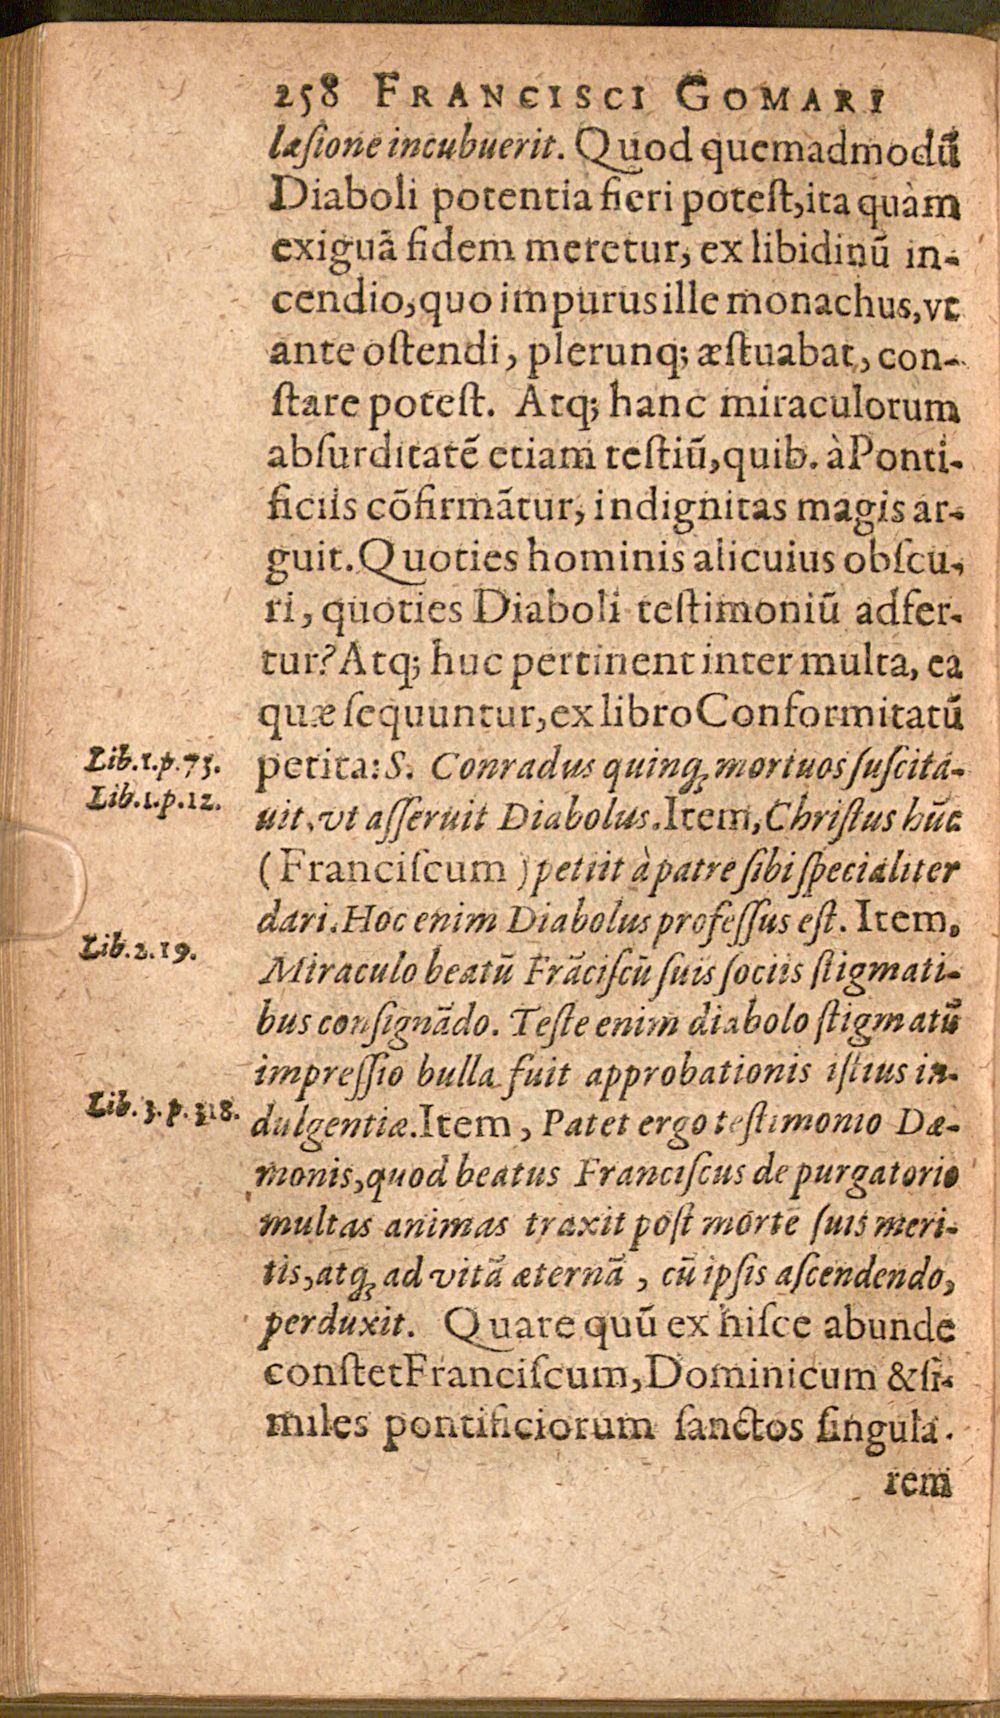 258 FRANCISCI GOMARI
læſione incubuerit. Quod quemadmodū
Diaboli potentia fieri poteſt, ita quàm
exiguā fidem meretur, ex libidinū in-
cendio, quo impurus ille monachus, vt
ante oſtendi, plerunq; æſtuabat, con-
ſtare poteſt. Atq; hanc miraculorum
abſurditatē etiam teſtiū, quib. à Ponti-
ficiis cōfirmātur, indignitas magis ar-
guit. Quoties hominis alicuius obſcu-
ri, quoties Diaboli teſtimoniū adfer-
tur? Atq; huc pertinent inter multa, ea
quæ ſequuntur, ex libro Conformitatū
Lib.1.p.73.
petita: S. Conradus quinq; mortuos ſuſcita-
Lib.1.p.12.
uit, vt aſſeruit Diabolus. Item, Chriſtus hūc
(Franciſcum) petiit à patre ſibi ſpecialiter
dari. Hoc enim Diabolus profeſſus eſt. Item.
Lib.2.19.
Miraculo beatū Frāciſcū ſuis ſociis ſtigmati-
bus conſignādo. Teſte enim diabolo ſtigmatū
impreſſio bulla fuit approbationis iſtius in-
Lib.3.p.318.
dulgentiæ. Item, Patet ergo teſtimonio Dæ-
monis, quod beatus Franciſcus de purgatorio
multas animas traxit poſt mortē ſuis meri-
tis, atq; ad vitā æternā, cū ipſis aſcendendo,
perduxit. Quare quū ex hiſce abunde
conſtet Franciſcum, Dominicum & ſi-
miles pontificiorum ſanctos ſingula-
rem